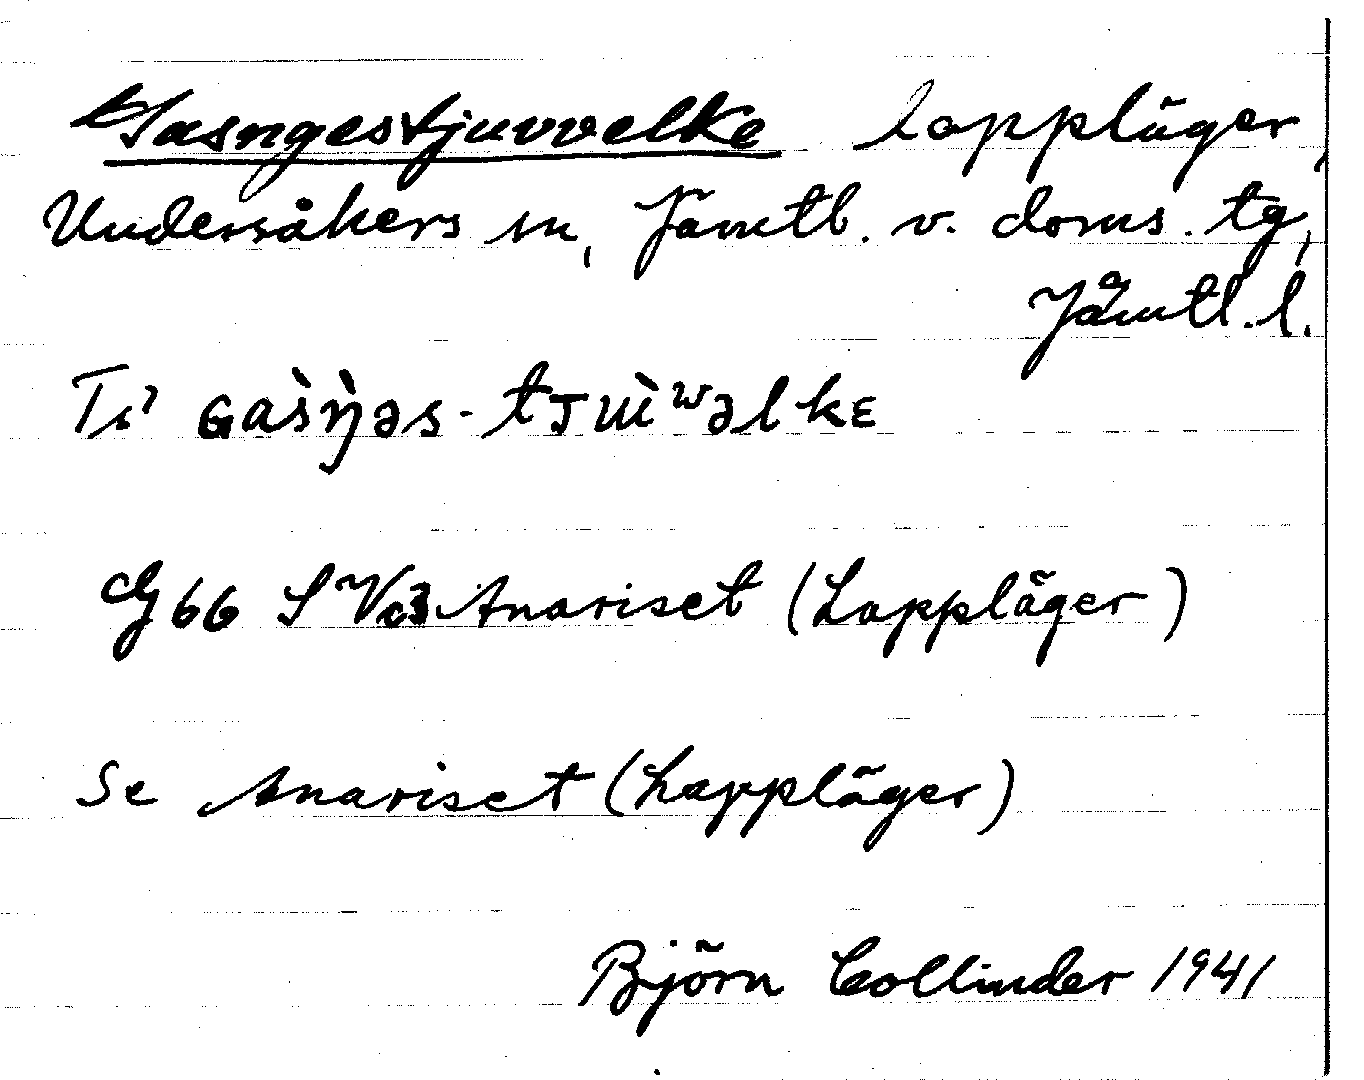 Gasngestjuvvelke lappläger,
Undersåkers sn, Jämtl. v. doms. tg,
Jämtl. l.
Ti' Gas̀ŋ̀əs-tJɯ̀ʷəlkɛ
Gg 66 S Vc3 Anariset (Lappläger)
Se Anariset (Lappläger)
Björn Collinder 1941